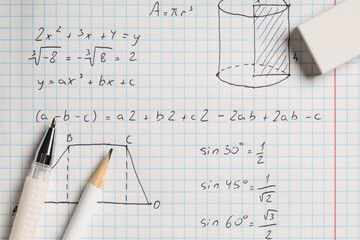 A = πr³
x
2x² + 3x + 4 = y
∛-8 = -∛8 = 2
h
y = ax³ + bx + c
(a - b - c) = a2 + b2 + c2 - 2ab + 2ab - c
B C
sin 30° = 1/2
sin 45° = 1/√2
D
sin 60° = √3/2